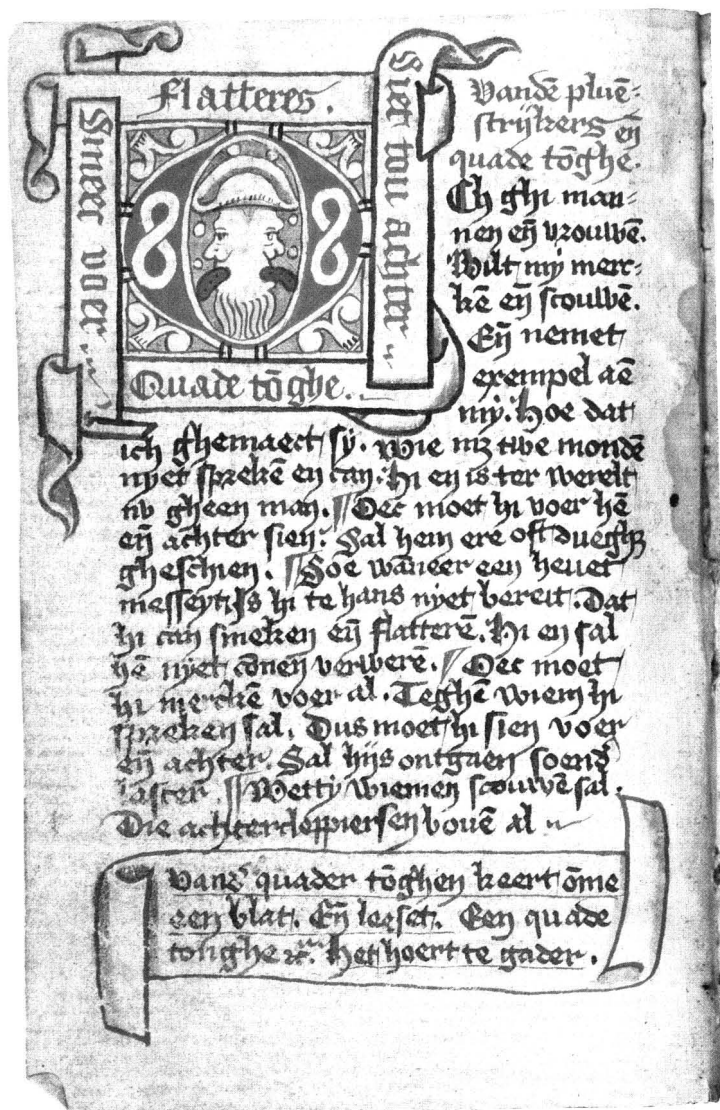 Flatteres.
Smeer voer
Siet tou achter
Quade tōghe.
Vandē pluē-
strijkers eñ
quade tōghe.
Ch ghi man-
nen eñ vrouwē.
Wilt my merc-
kē eñ scouwē.
Eñ nemet
exempel aē
my. Hoe dat
ich ghemaect sy. Wie mz twe mondē
nyet sprekē en can. Hi en is ter werelt
nv gheen man. Oec moet hi voer hē
eñ achter sien. Sal hem ere oft duegh
gheschien. Soe wāneer een heuet
messeyt. Is hi te hans nyet bereit. Dat
hi can smeken eñ flatterē. Hi en sal
hē nyet cōnen verwerē. Oec moet
hi merckē voer al. Teghē wiem hi
spreken sal. Dus moet hi sien voer
eñ achter. Sal hijs ontgaen soend
laster. Wetty wiemen scouwē sal.
Die achterclappers en bouē al
Vand quader tōghen keert ōme
een blat. Eñ leeset. Een quade
tonghe Het hoert te gader.